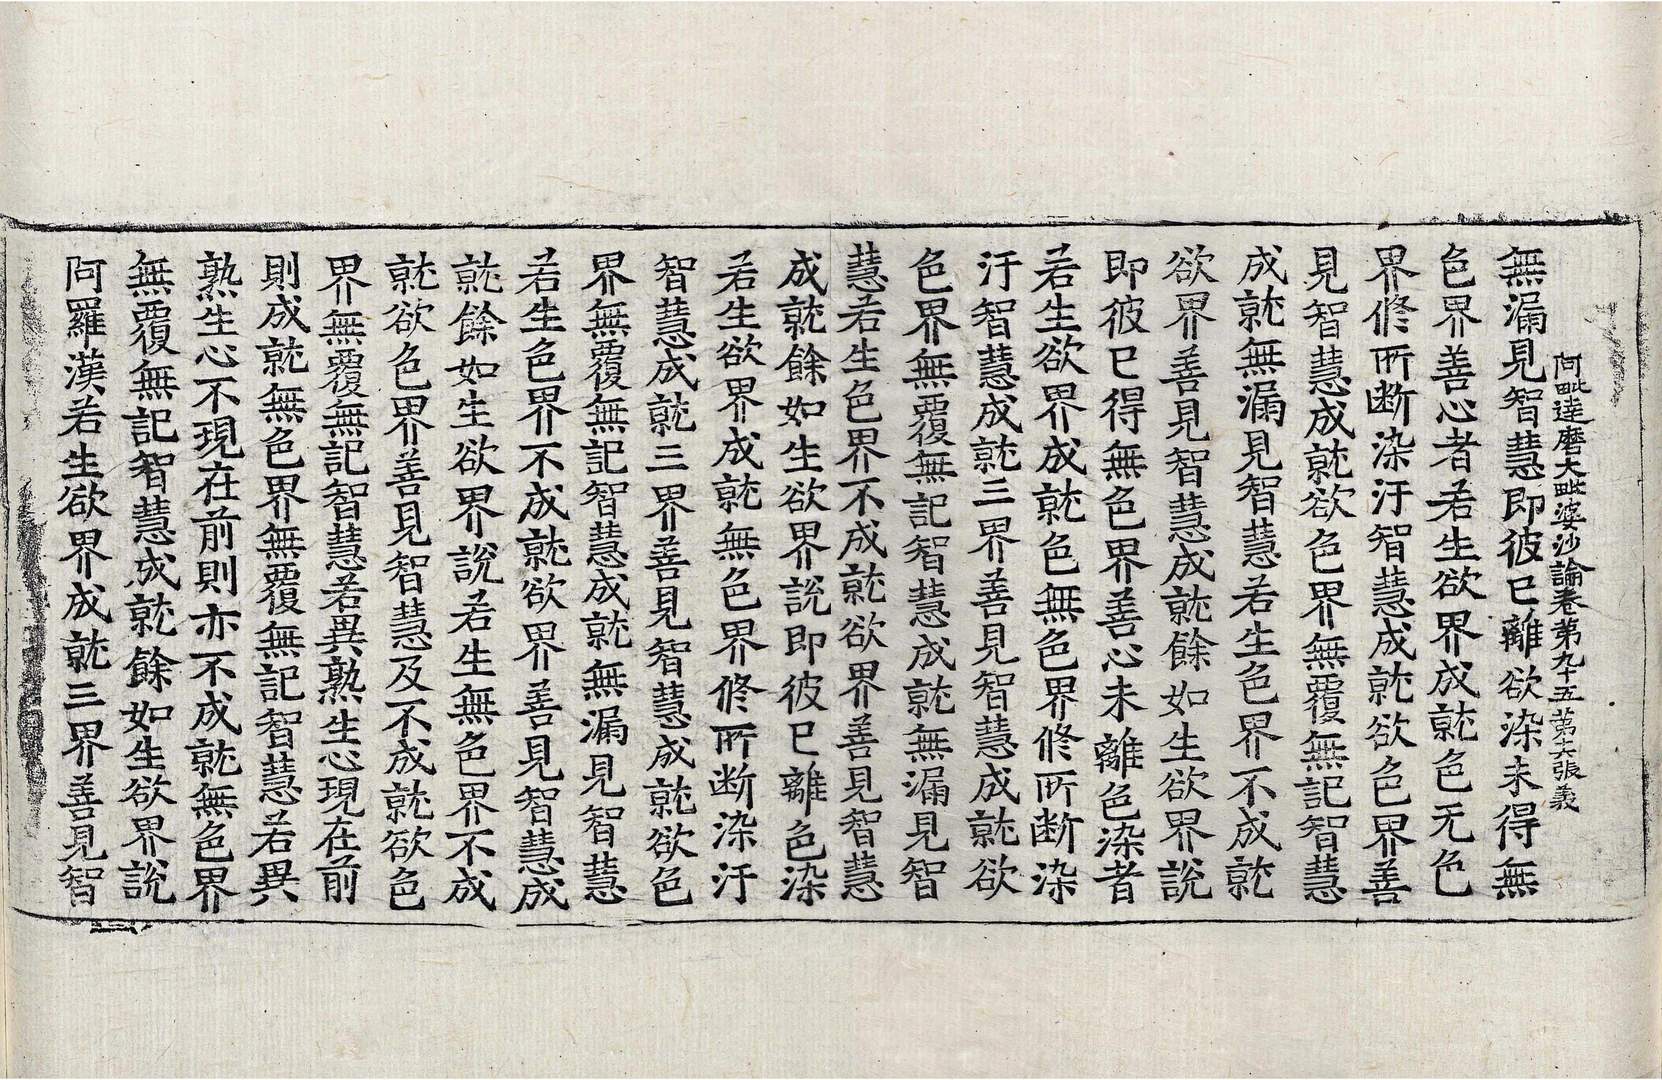 阿毗達磨大毗婆沙論卷第九十五 第十六張 義
無漏見智慧即彼已離欲染未得無
色界善心者若生欲界成就色无色
界修所断染汙智慧成就欲色界善
見智慧成就欲色界無覆無記智慧
成就無漏見智慧若生色界不成就
欲界善見智慧成就餘如生欲界說
即彼已得無色界善心未離色染者
若生欲界成就色無色界修所断染
汙智慧成就三界善見智慧成就欲
色界無覆無記智慧成就無漏見智
慧若生色界不成就欲界善見智慧
成就餘如生欲界說即彼已離色染
若生欲界成就無色界修所断染汙
智慧成就三界善見智慧成就欲色
界無覆無記智慧成就無漏見智慧
若生色界不成就欲界善見智慧成
就餘如生欲界說若生無色界不成
就欲色界善見智慧及不成就欲色
界無覆無記智慧若異熟生心現在前
則成就無色界無覆無記智慧若異
熟生心不現在前則亦不成就無色界
無覆無記智慧成就餘如生欲界說
阿羅漢若生欲界成就三界善見智